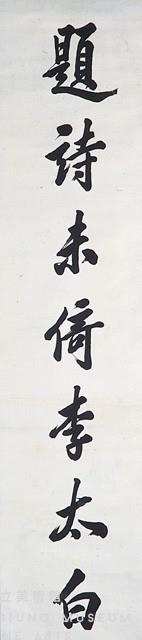 題詩未倚李太白
立美術館
HSIUNG MUSEUM
NE ARTS